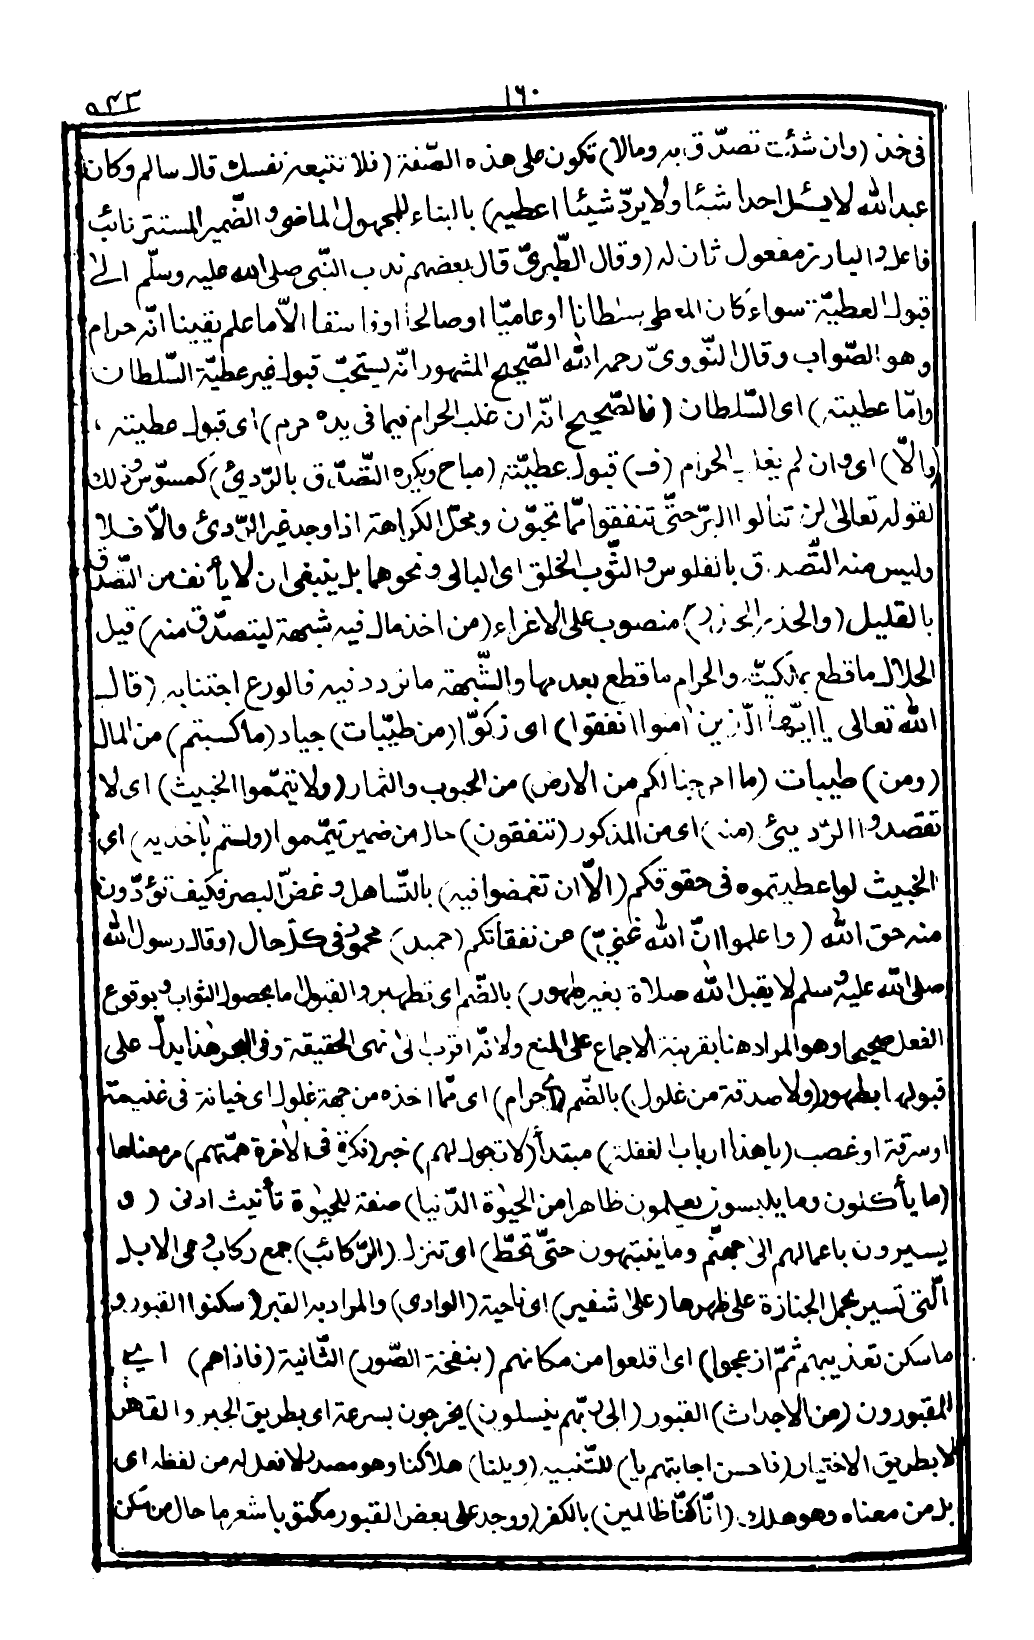 ١٦٠
٩٤٣
فى خذ (وان شئت تصدّق به ومالا) تكون على هذه الصّفة (فلا تتبعه نفسك قال سالم وكان
عبد الله لا يسئل احدا شيئا ولا يردّ شيئا اعطيه) بالبناء للمجهول الماضى والضّمير المستتر نائب
فاعل والبارز مفعول ثان له (وقال الطّبرىّ قال بعضهم ندب النّبى صلى الله عليه وسلّم الى
قبول العطيّة سواء كان المعطى سلطانا او عاميّا او صالحا او فاسقا الاّ ما علم يقينا انّه حرام
وهو الصّواب وقال النّووىّ رحمه الله الصّحيح المشهور انّه يستحبّ قبول غير عطيّة السّلطان
وامّا عطيته) اى السّلطان (فالصّحيح انّه ان غلب الحرام فيما فى يده حرم) اى قبول عطيته ،
(والاّ) اى وان لم يغلب الحرام (ف) قبول عطيّته (مباح ويكره التّصدّق بالرّدىئ) كمسوّس وذلك
لقوله تعالى لن تنالوا البرّ حتّى تنفقوا ممّا تحبّون ومحلّ الكراهة اذا وجد غير الرّدىئ والاّ فلا
وليس منه التّصدّق بالفلوس والثّوب الخلق اى البالى ونحوهما بل ينبغى ان لا يأنف من التّصدّق
بالقليل (والحذر الحذر) منصوب على الاغراء (من اخذ مال فيه شبهة ليتصدّق منه) قيل
الحلال ما قطع بملكيّته والحرام ما قطع بعدمها والشّبهة ما تردد فيه فالورع اجتنابه (قال
الله تعالى يا ايّها الّذين امنوا انفقوا) اى زكّوا (من طيّبات) جياد (ما كسبتم) من المال
(ومن) طيبات (ما اخرجنا لكم من الارض) من الحبوب والثمار (ولا تيمّموا الخبيث) اى لا
تقصدوا الرّديئ (منه) اى من المذكور (تنفقون) حال من ضمير تيمّموا (ولستم بأخذيه) اى
الخبيث لو اعطيتموه فى حقوقكم (الاّ ان تغمضوا فيه) بالتّساهل وغضّ البصر فكيف تؤدّون
منه حق الله (واعلموا انّ الله غنىّ) عن نفقاتكم (حميد) محمود فى كلّ حال (وقال رسول الله
صلى الله عليه وسلم لا يقبل الله صلاة بغير طهور) بالضّم اى تطهير والقبول اما بحصول الثواب او بوقوع
الفعل صحيحا وهو المراد هنا بقرينة الاجماع على المنع ولانّه اقرب الى نفى الحقيقة وفى البحر هذا يدلّ على
قبولها بطهور (ولا صدقة من غلول) بالضّم (اى حرام) اى ممّا اخذه من جهة غلول اى خيانة فى غنيمة
او سرقة او غصب (يا هذا ارباب الغفلة) مبتدأ (لا تجول لهم) خبر (فكرة فى الاخرة همّتهم) مر معناها
(ما يأكلون وما يلبسون يعلمون ظاهرا من الحيٰوة الدّنيا) صفة للحيٰوة تأنيث ادنى (و
يسيرون باعمالهم الى جهنّم وما ينتبهون حتّى تحطّ) اى تنزل (الرّكائب) جمع ركاب وهى الابل
الّتى تسير بحمل الجنازة على ظهرها (على شفير) اى ناحية (الوادى) والمراد به القبر (سكنوا القبور و
ما سكن تعذيبهم ثمّ ازعجوا) اى اقلعوا من مكانهم (بنفخة الصّور) الثّانية (فاذا هم) اى
المقبورون (من الاجداث) القبور (الى ربّهم ينسلون) يخرجون بسرعة اى بطريق الجبر والقهر
لا بطريق الاختيار (فاحسن اجابتهم يا) للتّنبيه (ويلنا) هلاكنا وهو مصدر لا فعل له من لفظه اى
بل من معناه وهو هلك (انّا كنّا ظالمين) بالكفر (ووجد على بعض القبور مكتوبا شعر ما حال من سكن